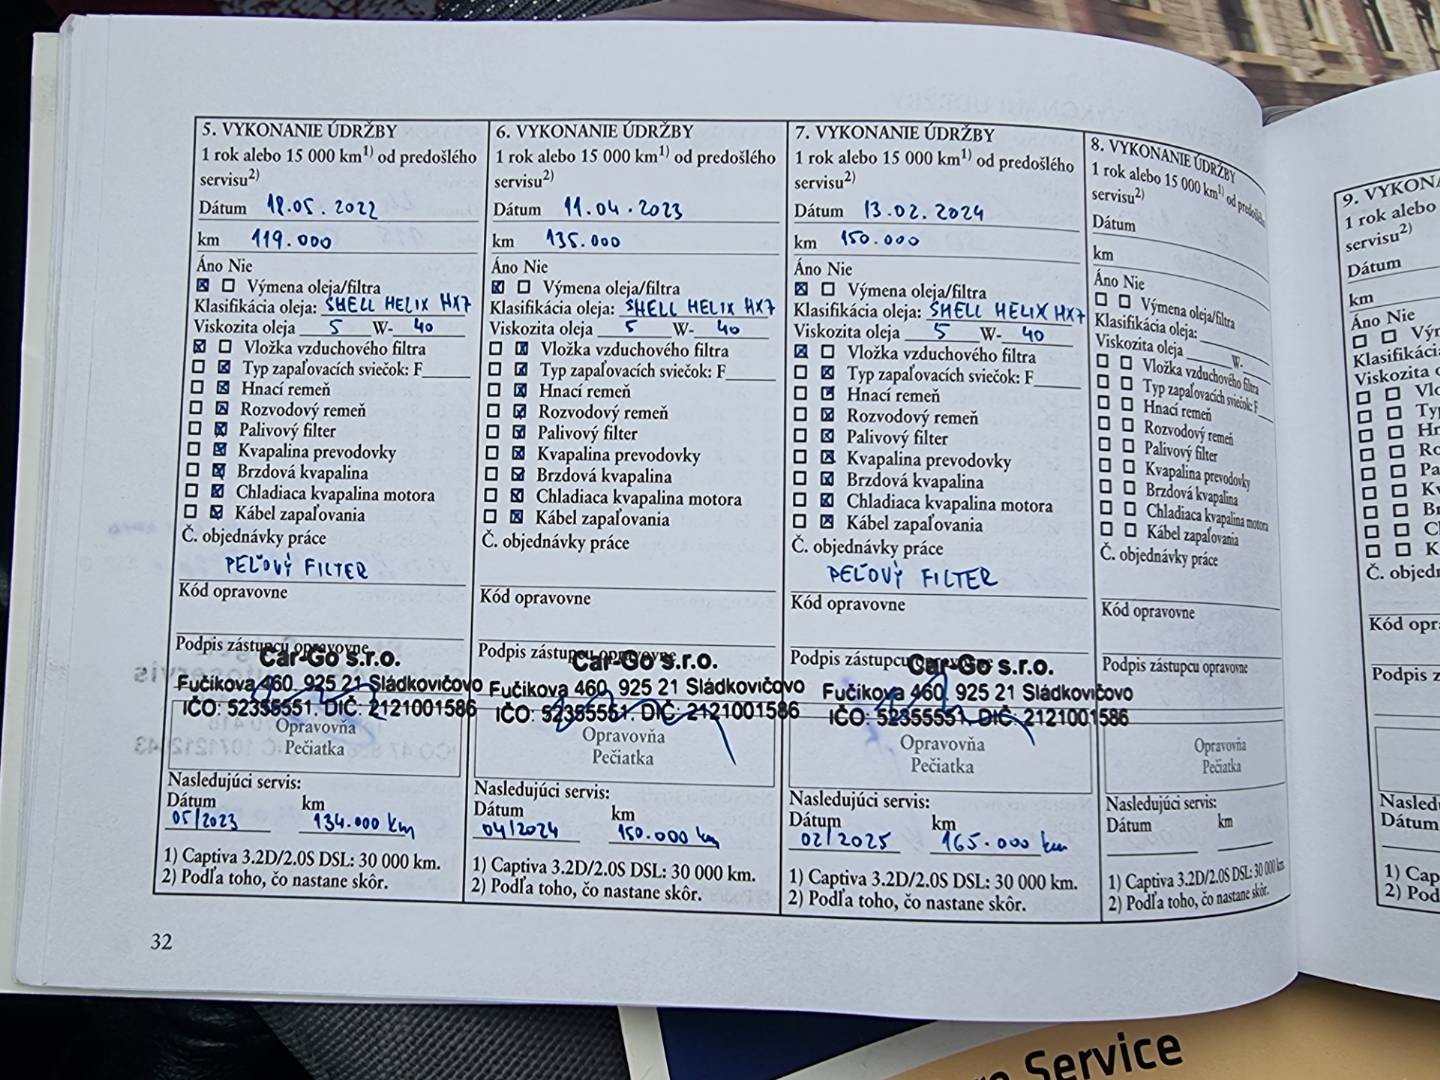 5. VYKONANIE ÚDRŽBY
1 rok alebo 15 000 km1) od predošlého
servisu2)
Dátum 18.05.2022
km 119.000
Áno Nie
Výmena oleja/filtra
Klasifikácia oleja: SHELL HELIX HX7
Viskozita oleja 5 W- 40
Vložka vzduchového filtra
Typ zapaľovacích sviečok: F
Hnací remeň
Rozvodový remeň
Palivový filter
Kvapalina prevodovky
Brzdová kvapalina
Chladiaca kvapalina motora
Kábel zapaľovania
Č. objednávky práce
PEĽOVÝ FILTER
Kód opravovne
Podpis zástupcu opravovne
Car-Go s.r.o.
Fučíkova 460, 925 21 Sládkovičovo
IČO: 52355551, DIČ: 2121001586
Opravovňa
Pečiatka
Nasledujúci servis:
Dátum km
05/2023 134.000 km
1) Captiva 3.2D/2.0S DSL: 30 000 km.
2) Podľa toho, čo nastane skôr.
6. VYKONANIE ÚDRŽBY
1 rok alebo 15 000 km1) od predošlého
servisu2)
Dátum 11.04.2023
km 135.000
Áno Nie
Výmena oleja/filtra
Klasifikácia oleja: SHELL HELIX HX7
Viskozita oleja 5 W- 40
Vložka vzduchového filtra
Typ zapaľovacích sviečok: F
Hnací remeň
Rozvodový remeň
Palivový filter
Kvapalina prevodovky
Brzdová kvapalina
Chladiaca kvapalina motora
Kábel zapaľovania
Č. objednávky práce
Kód opravovne
Podpis zástupcu opravovne
Car-Go s.r.o.
Fučíkova 460, 925 21 Sládkovičovo
IČO: 52355551, DIČ: 2121001586
Opravovňa
Pečiatka
Nasledujúci servis:
Dátum km
04/2024 150.000 km
1) Captiva 3.2D/2.0S DSL: 30 000 km.
2) Podľa toho, čo nastane skôr.
7. VYKONANIE ÚDRŽBY
1 rok alebo 15 000 km1) od predošlého
servisu2)
Dátum 13.02.2024
km 150.000
Áno Nie
Výmena oleja/filtra
Klasifikácia oleja: SHELL HELIX HX7
Viskozita oleja 5 W- 40
Vložka vzduchového filtra
Typ zapaľovacích sviečok: F
Hnací remeň
Rozvodový remeň
Palivový filter
Kvapalina prevodovky
Brzdová kvapalina
Chladiaca kvapalina motora
Kábel zapaľovania
Č. objednávky práce
PEĽOVÝ FILTER
Kód opravovne
Podpis zástupcu
Car-Go s.r.o.
Fučíkova 460, 925 21 Sládkovičovo
IČO: 52355551, DIČ: 2121001586
Opravovňa
Pečiatka
Nasledujúci servis:
Dátum km
02/2025 165.000 km
1) Captiva 3.2D/2.0S DSL: 30 000 km.
2) Podľa toho, čo nastane skôr.
8. VYKONANIE ÚDRŽBY
1 rok alebo 15 000 km1) od predošlého
servisu2)
Dátum
km
Áno Nie
Výmena oleja/filtra
Klasifikácia oleja:
Viskozita oleja W-
Vložka vzduchového filtra
Typ zapaľovacích sviečok: F
Hnací remeň
Rozvodový remeň
Palivový filter
Kvapalina prevodovky
Brzdová kvapalina
Chladiaca kvapalina motora
Kábel zapaľovania
Č. objednávky práce
Kód opravovne
Podpis zástupcu opravovne
Opravovňa
Pečiatka
Nasledujúci servis:
Dátum km
1) Captiva 3.2D/2.0S DSL: 30 000 km.
2) Podľa toho, čo nastane skôr.
32
9. VYKONA
1 rok alebo
servisu2)
Dátum
km
Áno Nie
Vý
Klasifikáci
Viskozita o
Vlo
Ty
Hn
Ro
Pa
Kv
Br
C
K
Č. objedn
Kód opr
Podpis z
Nasled
Dátum
1) Cap
2) Pod
Service